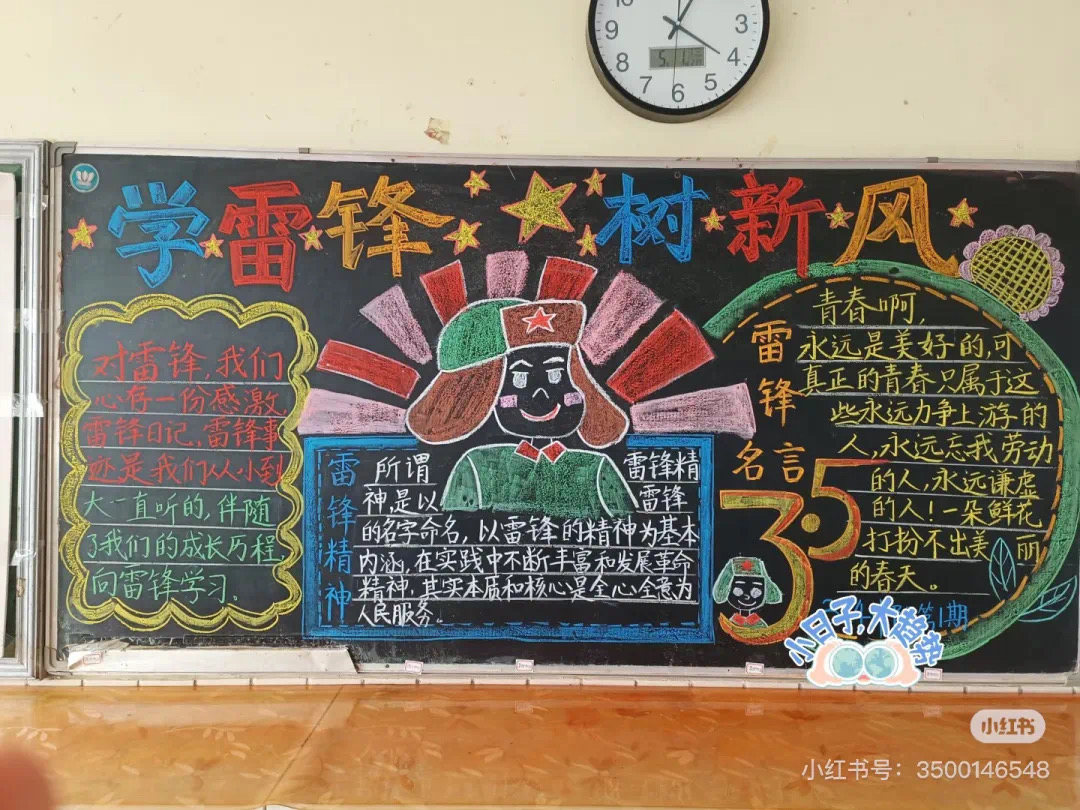 10
3
9
4
8
5
7
6
学雷锋 树新风
对雷锋,我们
心存一份感激,
雷锋日记,雷锋事
迹是我们从小到
大一直听的,伴随
了我们的成长历程,
向雷锋学习。
雷锋精神
所谓 雷锋精
神,是以 雷锋
的名字命名,以雷锋的精神为基本
内涵,在实践中不断丰富和发展革命
精神,其实本质和核心是全心全意为
人民服务。
雷锋名言
青春啊,
永远是美好的,可
真正的青春只属于这
些永远力争上游的
人,永远忘我劳动
的人,永远谦虚
的人!一朵鲜花
打扮不出美丽
的春天。
3.5
第1期
小日子,大趋势
小红书
小红书号:3500146548